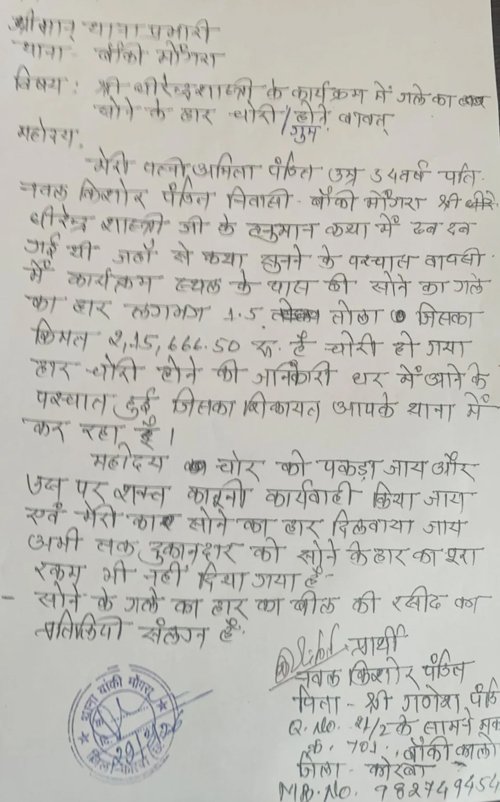 श्रीमान् थाना प्रभारी
थाना - बाँकी मोंगरा
विषय : श्री धीरेन्द्र शास्त्री के कार्यक्रम में गले का
सोने के हार चोरी / होने बावत्
गुम
महोदय,
मेरी पत्नी अमिता पंडित उम्र 54 वर्ष पति
नवल किशोर पंडित निवासी - बाँकी मोंगरा श्री धीरे-
धीरेन्द्र शास्त्री जी के हनुमान कथा में
गई थी जहाँ से कथा सुनने के पश्चात वापसी
में कार्यक्रम स्थल के पास की सोने का गले
का हार लगभग 1.5 तोला जिसका
किमत 2,15,666.50 रु. है चोरी हो गया
हार चोरी होने की जानकारी घर में आने के
पश्चात हुई जिसका शिकायत आपके थाना में
कर रहा हूँ ।
महोदय चोर को पकड़ा जाय और
उस पर शक्त कानूनी कार्यवाही किया जाय
एवं मेरी सोने का हार दिलवाया जाय
अभी तक दुकानदार को सोने के हार का पूरा
रकम भी नहीं दिया गया है -
- सोने के गले का हार का बील की रसीद का
प्रतिलिपी संलग्न है -
प्रार्थी
नवल किशोर पंडित
पिता - श्री गणेश पंडि
Q. No. 21/2 के सामने
क्र. 701, बाँकी कालो
जिला - कोरबा
MB. No. 982749454
थाना बांकी मोंगरा